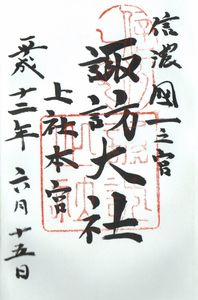 信濃國一之宮
諏訪大社
上社本宮
平成十二年 六月十五日